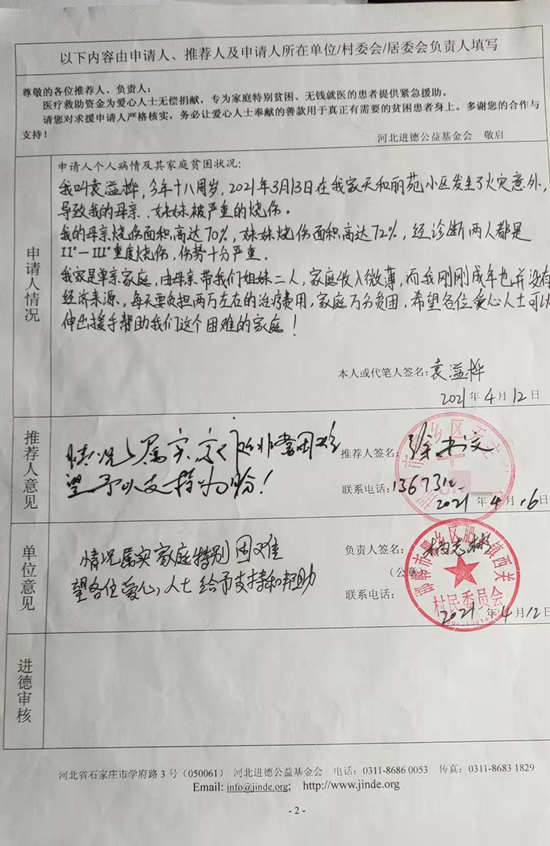 以下内容由申请人、推荐人及申请人所在单位/村委会/居委会负责人填写
尊敬的各位推荐人、负责人：
医疗救助资金为爱心人士无偿捐献，专为家庭特别贫困、无钱就医的患者提供紧急援助。
请您对求援申请人严格核实，务必让爱心人士奉献的善款用于真正有需要的贫困患者身上。多谢您的合作与
支持！
河北进德公益基金会 敬启
申请人情况
申请人个人病情及其家庭贫困状况：
我叫袁溢桦，今年十八周岁，2021年3月13日在我家天和丽苑小区发生了火灾意外，
导致我的母亲、妹妹被严重的烧伤。
我的母亲烧伤面积高达70%，妹妹烧伤面积高达72%，经诊断两人都是
II°-III°重度烧伤，伤势十分严重。
我家是单亲家庭，由母亲带我们姐妹二人，家庭收入微薄，而我刚刚成年也并没有
经济来源，每天要负担两万左右的治疗费用，家庭万分贫困，希望各位爱心人士可以
伸出援手帮助我们这个困难的家庭！
本人或代笔人签名：袁溢桦
2021年4月12日
推荐人意见
情况属实，家庭非常困难
望予以支持为盼！
推荐人签名：
联系电话：13673
2021年4月16日
单位意见
情况属实家庭特别困难
望各位爱心人士给予支持和帮助
负责人签名：
（公章）
联系电话：
2021年4月12日
肥乡区肥乡镇西关
村民委员会
进德审核
河北省石家庄市学府路3号（050061） 河北进德公益基金会 电话：0311-8686 0053 传真：0311-8683 1829
Email: info@jinde.org; http://www.jinde.org
- 2 -